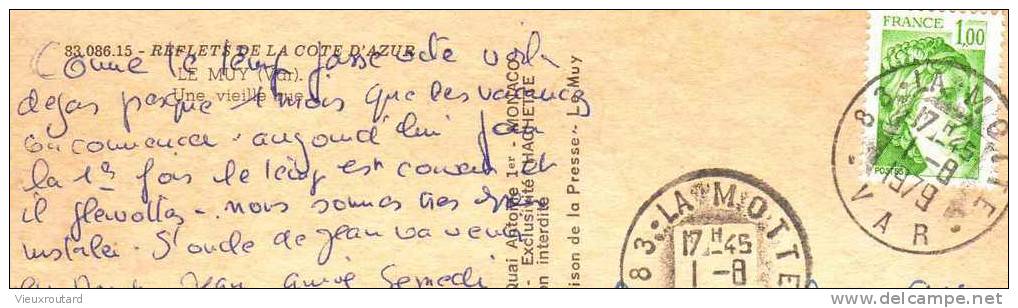 83.086.15 - REFLETS DE LA COTE D'AZUR
LE MUY (Var).
Une vieille rue
Comme le temp passe vite voila
deja presque 1 mois que les vacances
on commencer. aujourd'hui pour
la 1er fois le temp est couvert et
il ... nous sommes tres bien
installer. S'onde de Jean va venir
Jean ... Samedi
Quai Antoine 1er - MONACO
- Exclusivité HACHETTE
on interdite
ison de la Presse - Le Muy
83 · LA MOTTE
17 H 45
1 -8
FRANCE
1,00
POSTES
83 · LA MOTTE
17 H 45
1 -8
1979
VAR
© Vieuxroutard
delcampe.net